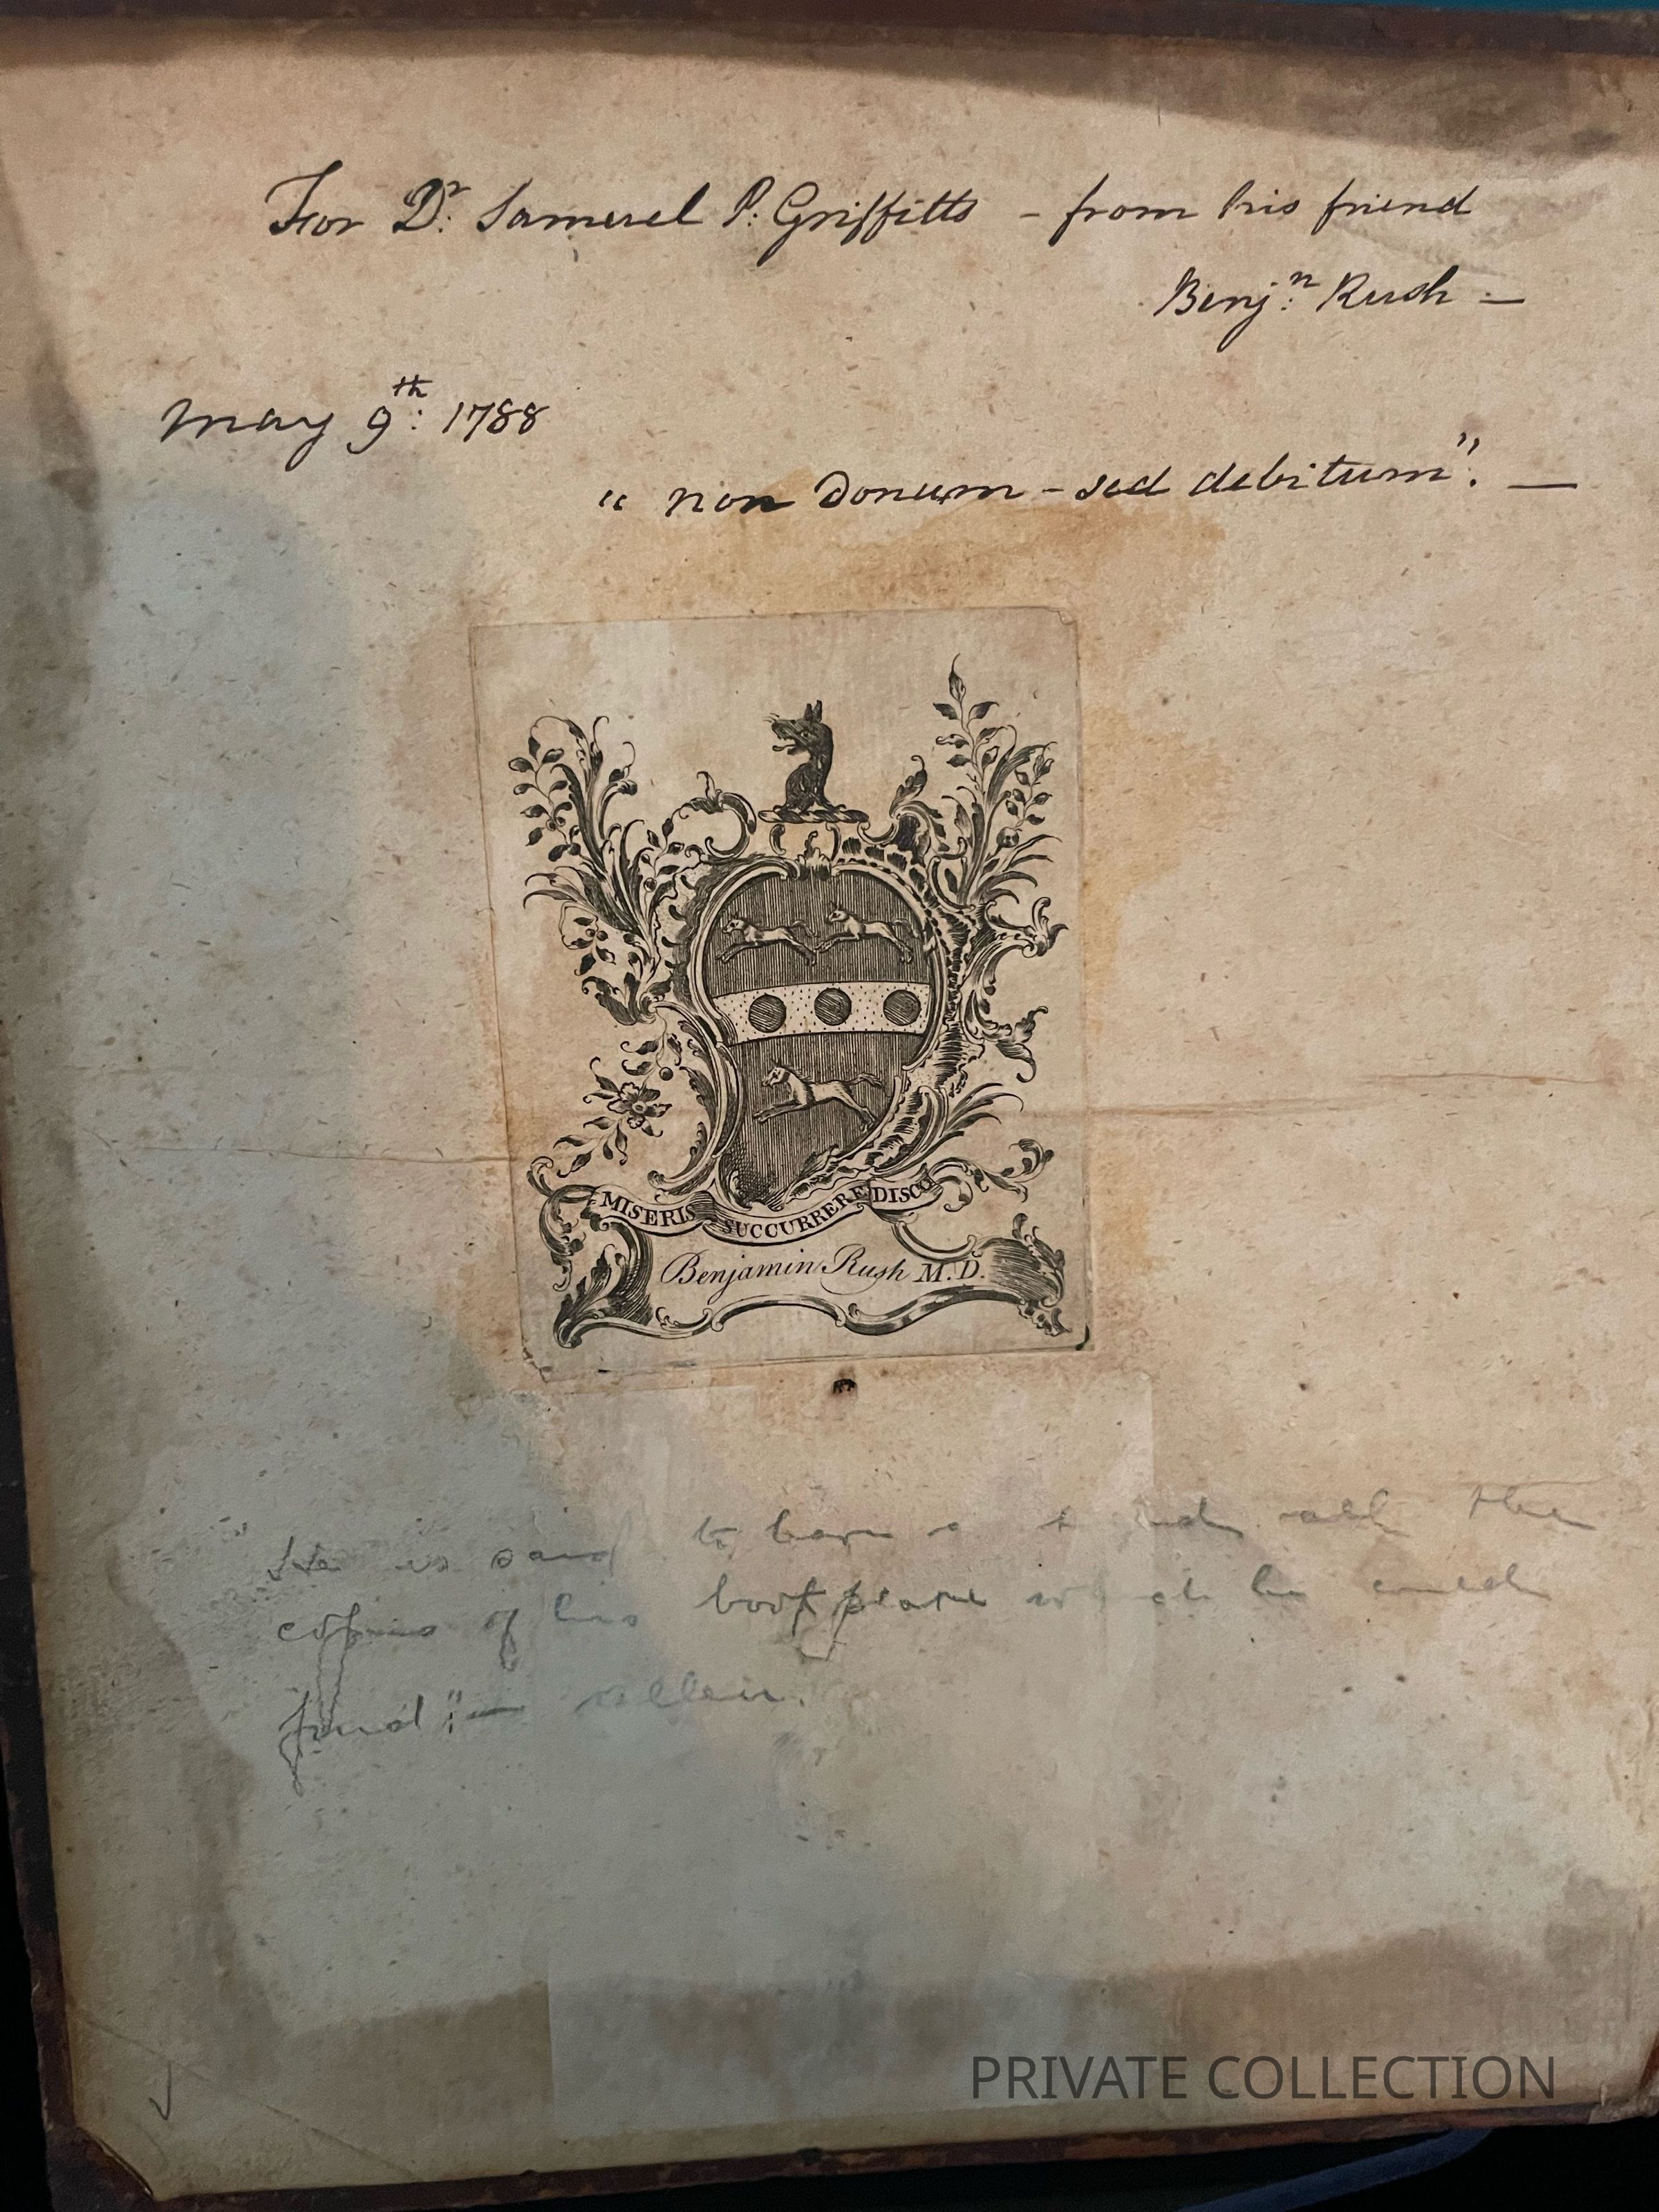 For Dr. Samuel P. Griffitts - from his friend
Benjn. Rush —
May 9th: 1788
" non donum - sed debitum". —
MISERIS SUCCURRERE DISCO
Benjamin Rush M.D.
"He is said to have all the
copies of his bookplate which he could
find" :— Allen.
PRIVATE COLLECTION